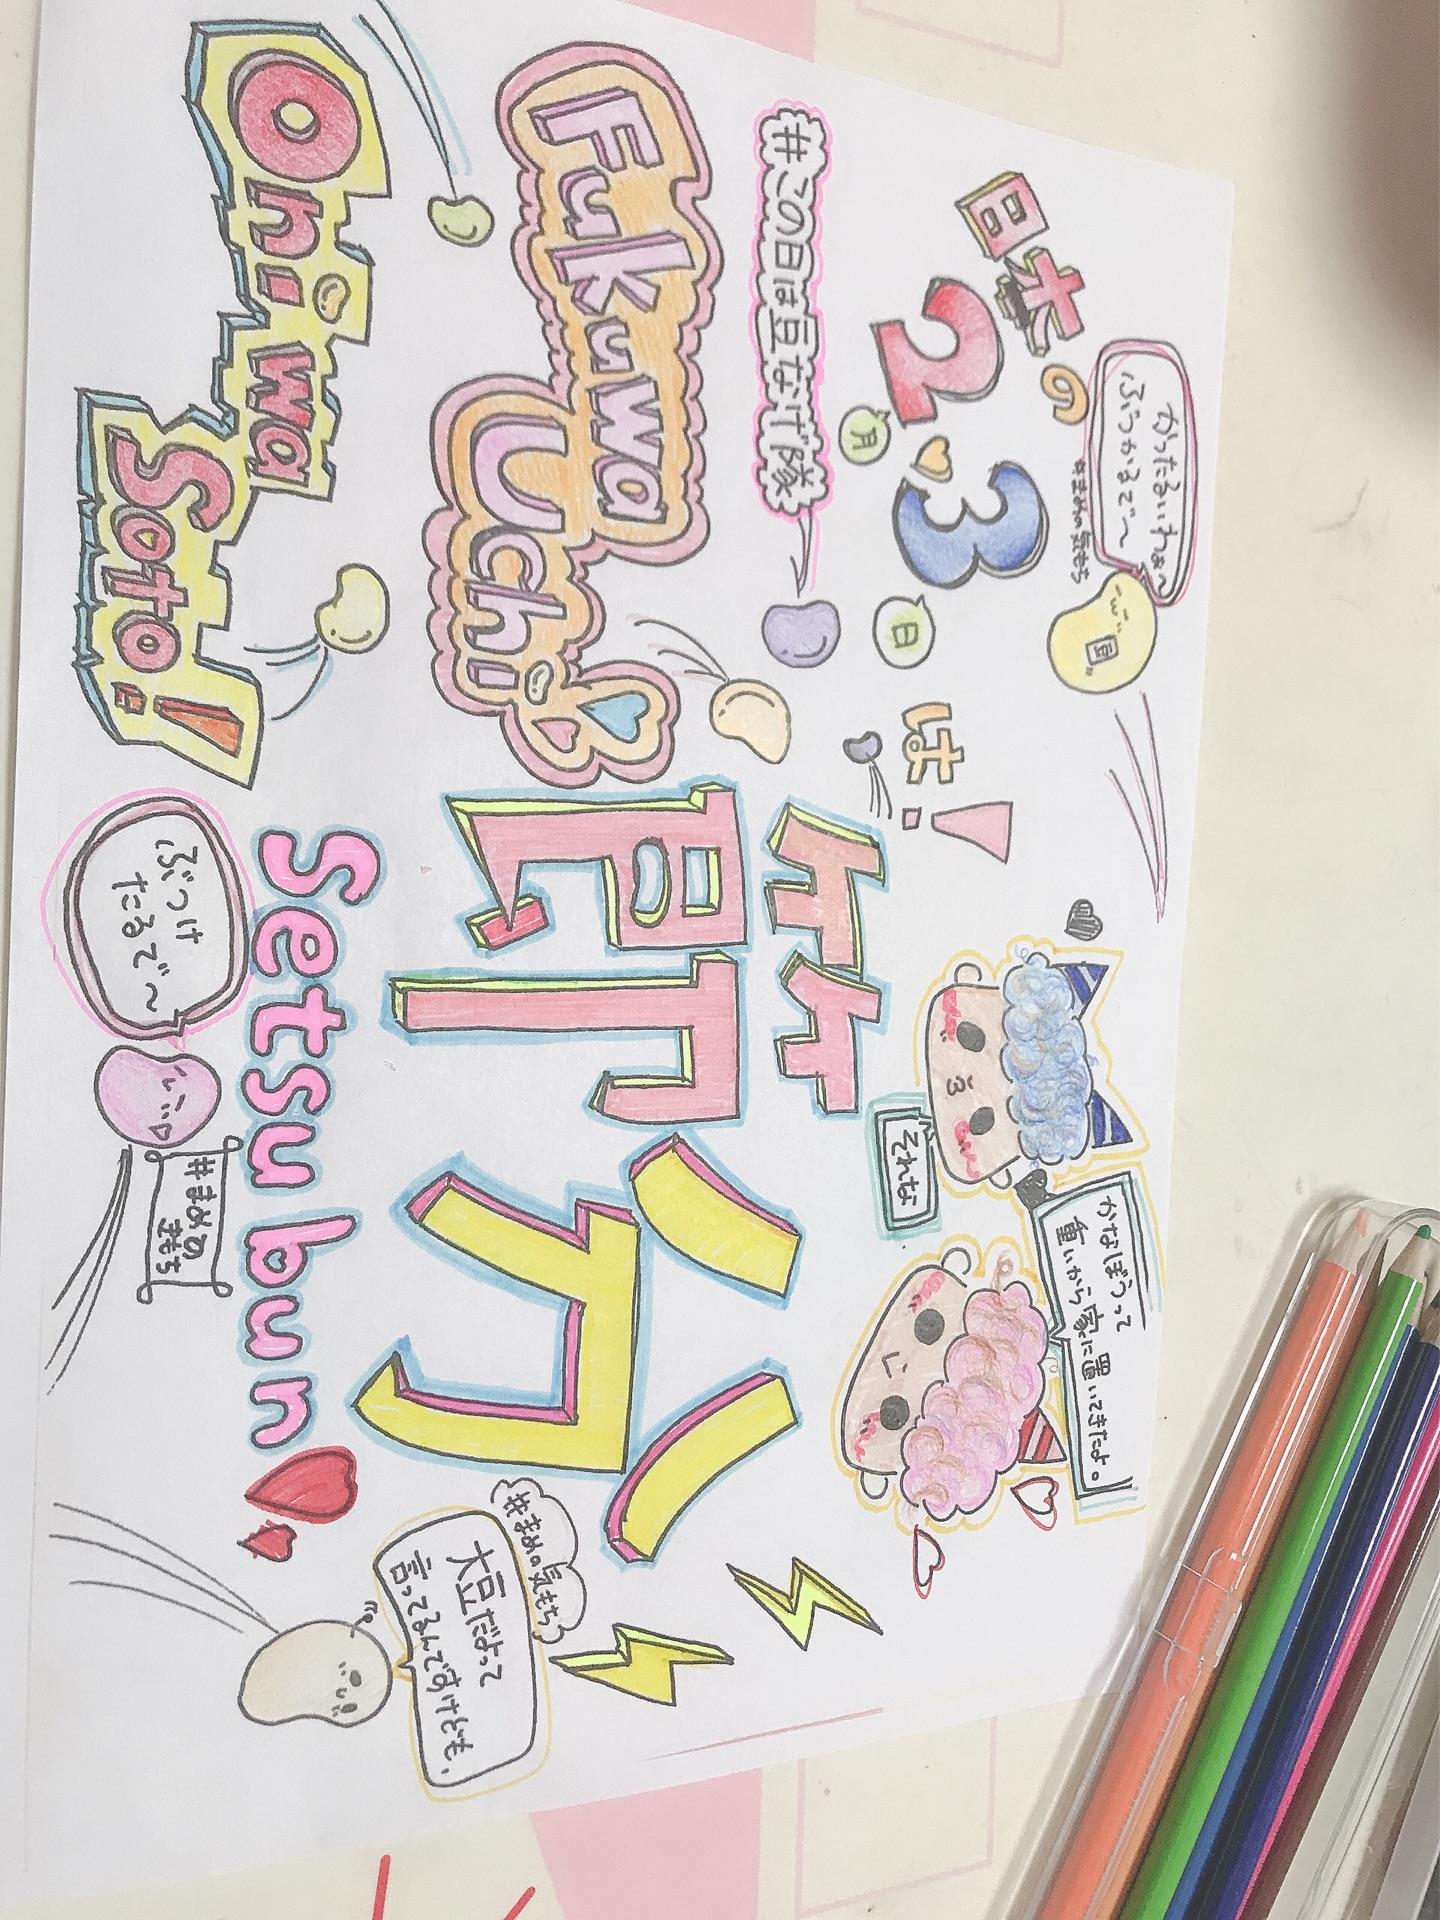 日本の
2.3
月
日
は!
かったるいわぁ〜
ぶつかるで〜
#まめの気もち
豆
#この日は豆なげ隊
節分
Setsubun
Fukuwa
Uchi
Ohiwa
Soto!
それな
かなぼうって
重いから家に置いてきたよ。
ぶつけ
たるで〜
#まめの
気もち
#まめの気もち
大豆だよって
言ってるんですけども、